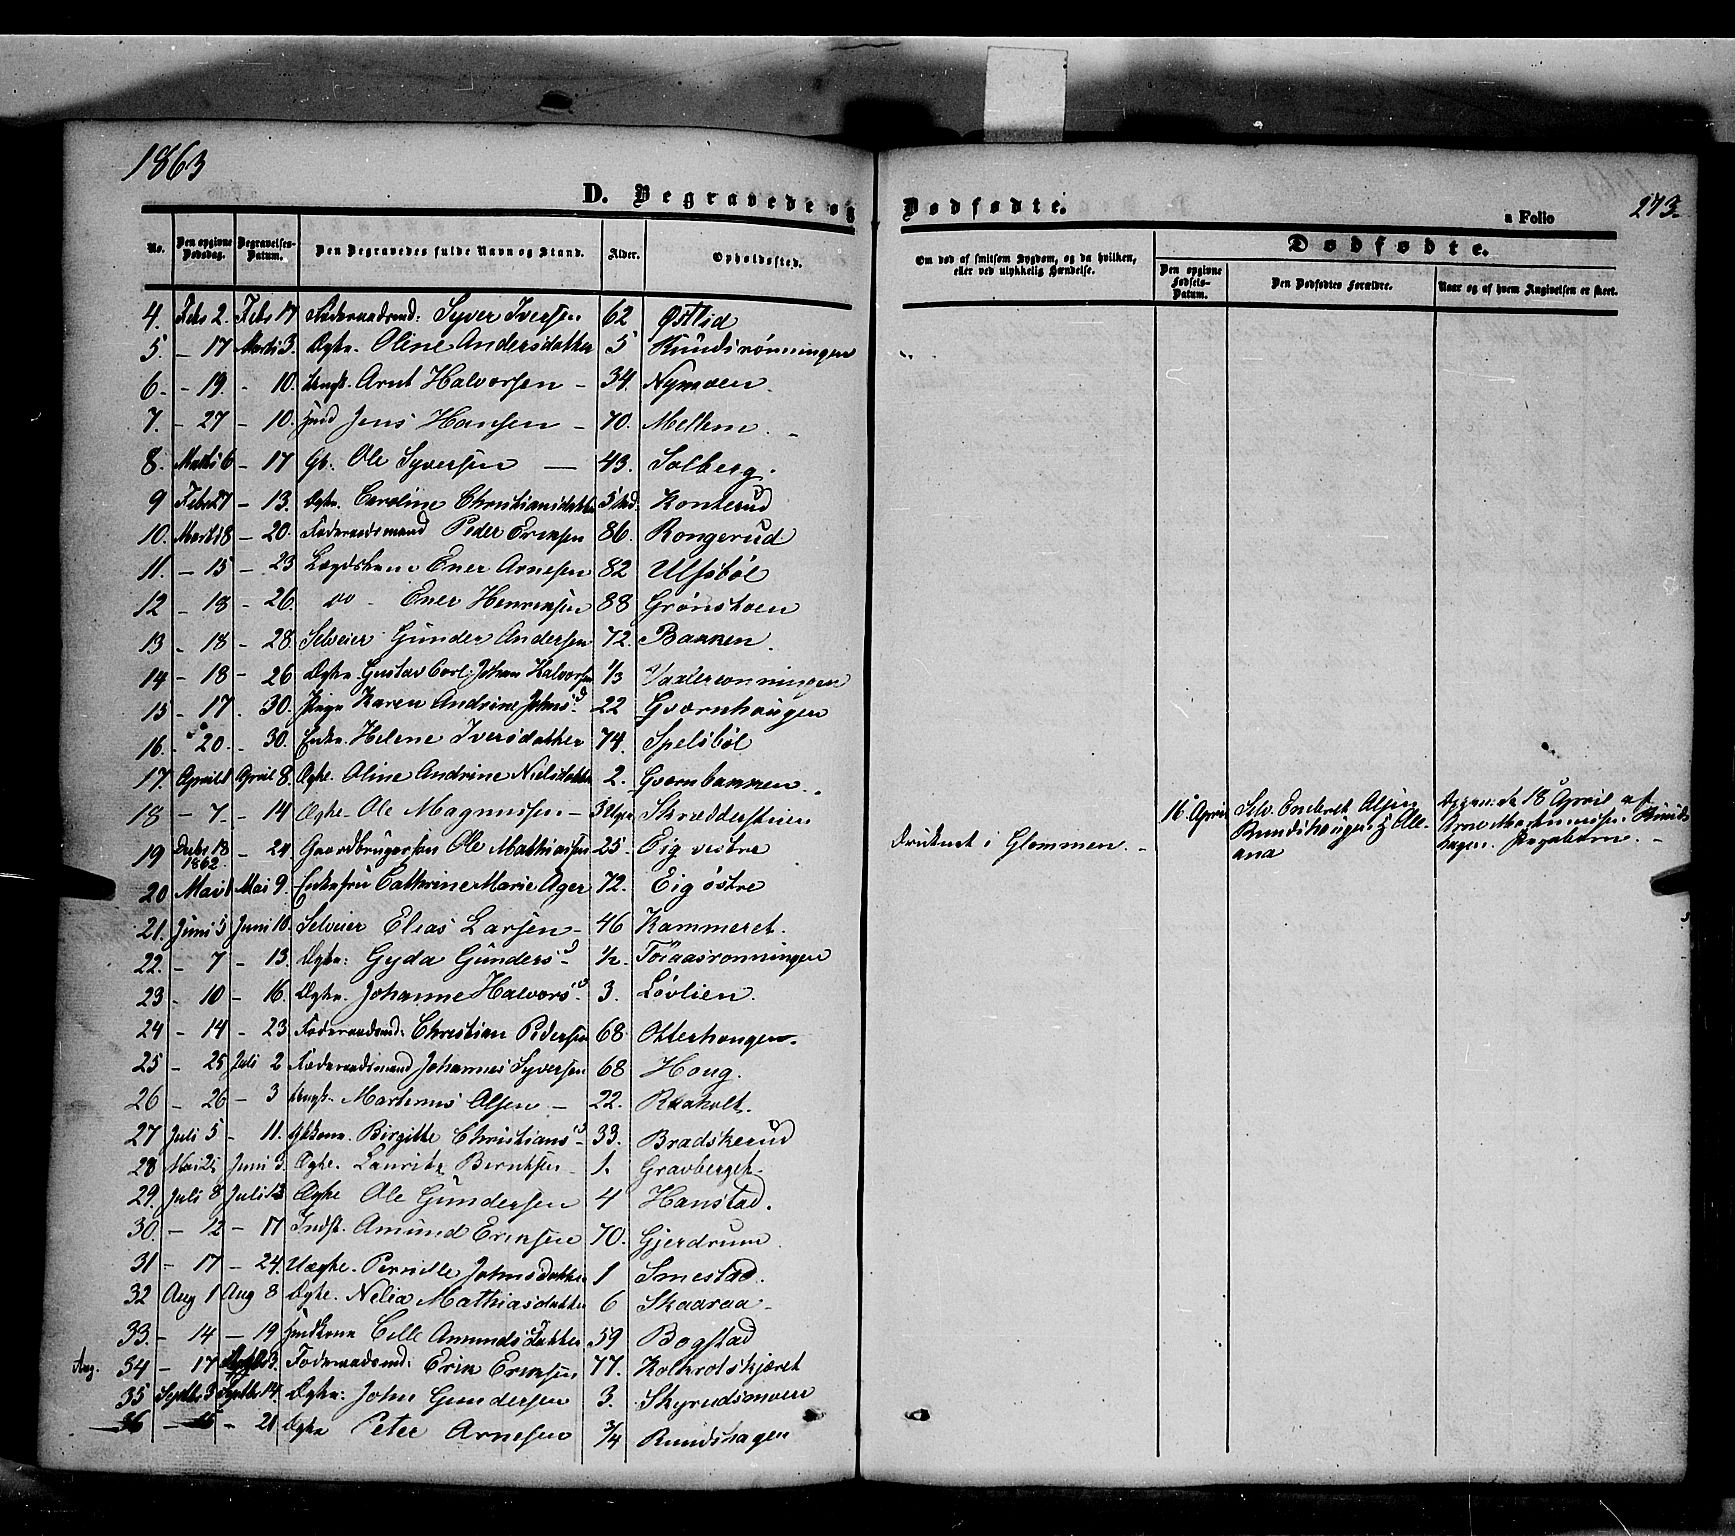 1863
D. Begravede og Dødfødte.
a Folio 273.
No. Den opgivne Dødsdag. Begravelses-Datum. Den Begravedes fulde Navn og Stand. Alder. Opholdssted. Om død af smitsom Sygdom, og da hvilken, eller ved ulykkelig Hændelse.
Dødfødte.
Den opgivne Fødsels-Datum. Den Dødfødtes Forældre. Naar og af hvem Angivelsen er skeet.
4. Febr 2. Febr 17 Føderaadsmd: Syver Iversen 62 Østlid
5 - 17 Marts 3. Ægte. Oline Andersdatter 5 Knudsrønningen
6 - 19. - 10. Ungk. Arnt Halvorsen - 34. Nymoen.
7. - 27 - 10. Jens Hansen - 70. Mellem.
8. Marts 6 - 17 Gb. Ole Syversen - 43. Solberg.
9 Febr 27 - 13. Ægte. Caroline Christiansdatter Konterud
10. Marts 8 - 20. Føderaadsmand Peder Eriksen 86. Rongerud
11. - 15 - 23 Lægdslem Ener Arnesen 82 Ulfsbøl
12 - 18 - 26. do - Ener Henriksen 88 Grønstoen
13 - 18 - 28. Selveier Gunder Andersen 72. Bakken.
14 - 18 - 26 Ægte. Gustav Carl Johan Halvorsen 1/3
15 - 17. - 30. Pige Karen Andrine Johnsd 22 Gværnhaugen
16. - 20. - 30. Enke. Helene Iversdatter 74. Spelsbøl
17. April 1 April 8. Ægte. Oline Andrine Nielsdatter 2. Gværnbakken.
18 - 7. - 14 Ægte Ole Magnussen - 3 Uger Skræddersteien
16 April Selv. Engebret Olsen Rundshaugen & Oleana
18 April af Arne Martinussen
19 Decbr 18 1862 - 24 Gaardbrugersøn Ole Mathiassen 25. Eig vestre druknet i Glommen. -
20 Mai 1 Mai 9. Enkefru Cathrine Marie Ager 72. Eig østre
21. Juni 5 Juni 10. Selveier Elias Larsen - 46 Kammeret.
22. - 7 - 13. Ægte: Gyda Gundersd - 1/2. Toraasrønningen
23 - 10 - 16. Ægte. Johanne Halvorsd 3. Løvlien.
24 - 14 - 23 Føderaadsmd: Christian Pedersen 68. Otterhaugen.
25 - 25 Juli 2 Føderaadsmand Johannes Syversen 68 Houg.
26 - 26 - 3 Ungk. Martinus Olsen - 22. Raaholt.
27 Juli 5 - 11. Birgitte Christiansd 33. Bradskerud
28 Mai 25 Juni 3. Ægte. Lauritz Berntsen - 1. Gravberget.
29. Juli 8 Juli 13 Ægte Ole Gundersen 4 Hanstad.
30. - 12 - 17 Indst. Amund Eriksen 70. Gjerdrum.
31 - 17 - 24. Uægte. Pernille Johnsdatter 1 Smestad.
32 Aug 1 Aug 8 Ægte. Nelia Mathiasdatter 6 Skaaraa
33. - 14 - 19 Celle Amundsdatter 59 Bogstad
Aug. 34 - 17 Føderaadsmd: Erik Eriksen 77. Kolkrotskjæret
35 Septbr 3 Septbr 14. Ægte: John Gundersen 3. Skyrudsmoen
36 - 15 - 21 Ægte Peter Arnesen 3/4 Rundshagen